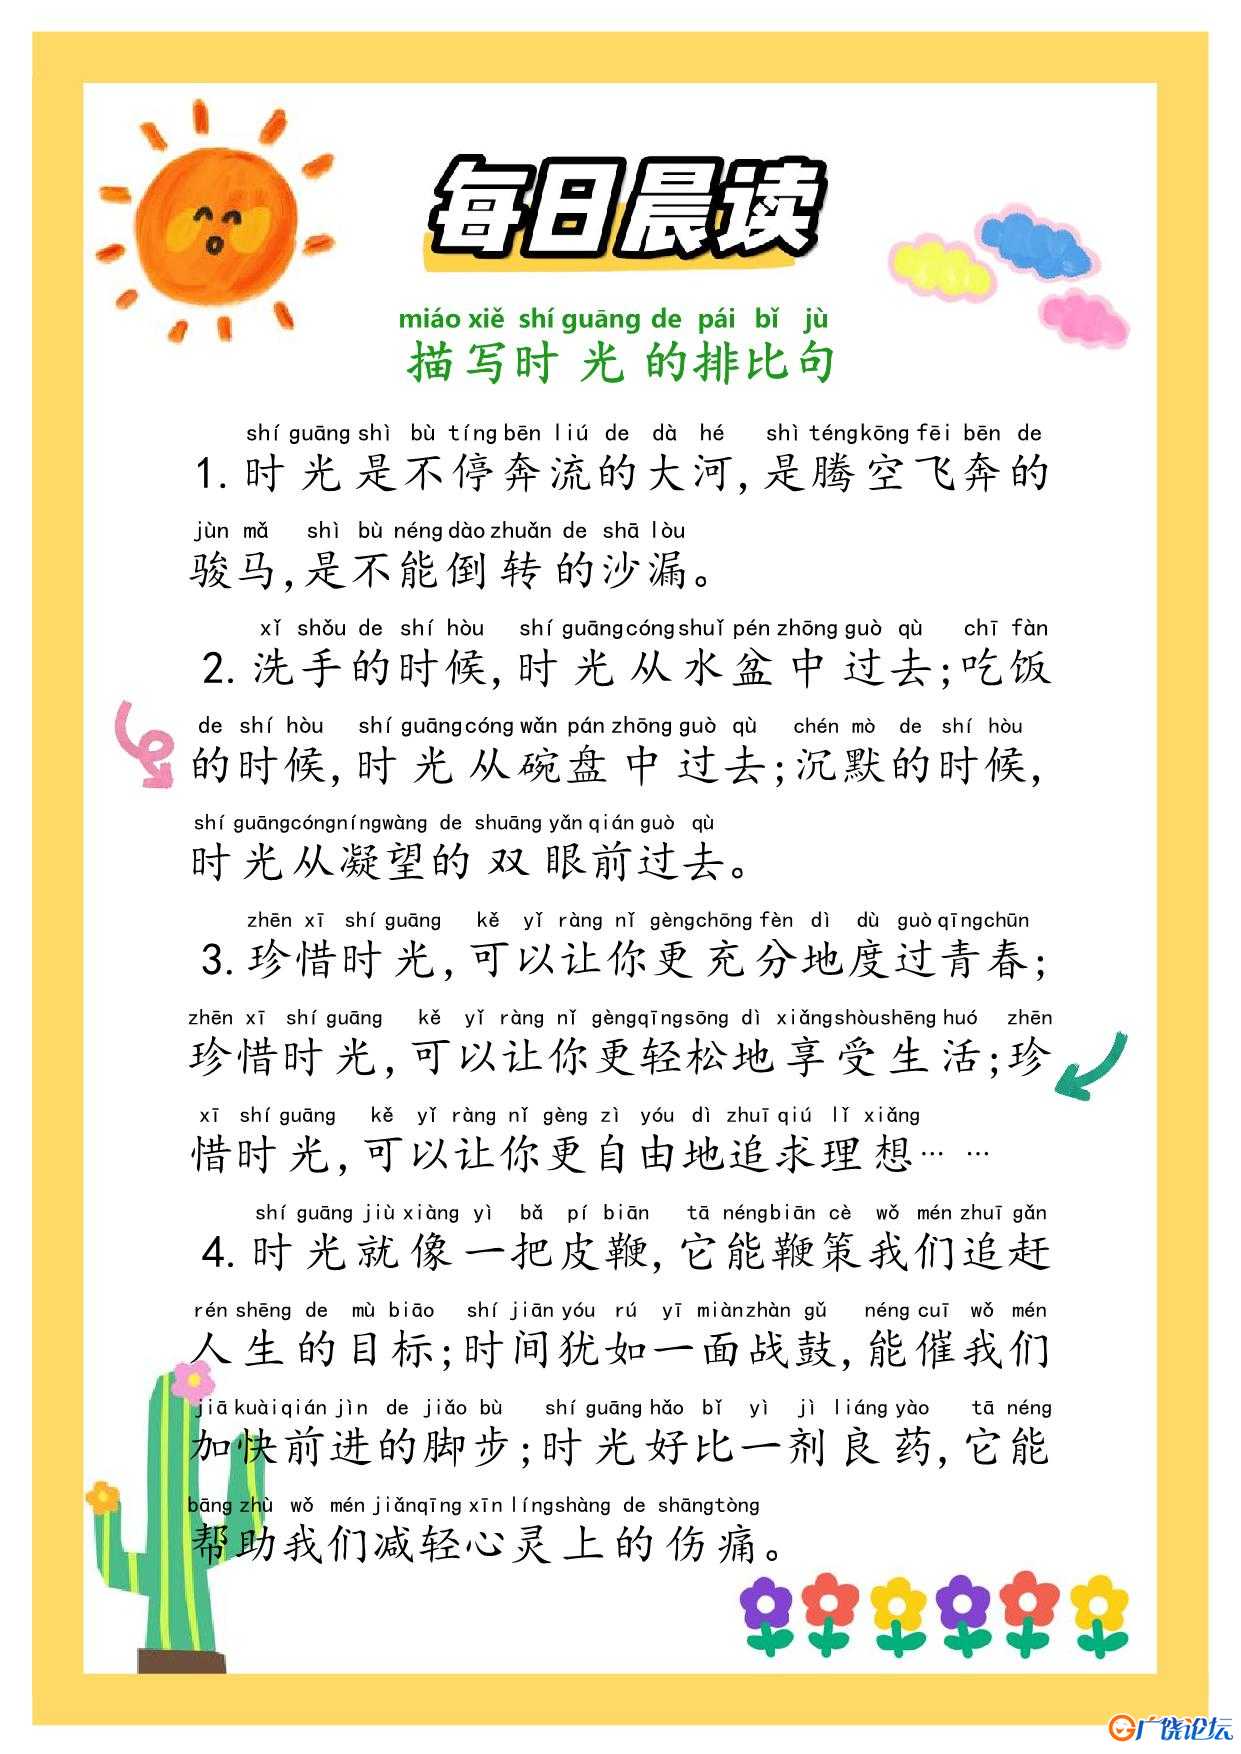 每日晨读
miáo xiě shí guāng de pái bǐ jù
描写时光的排比句
shí guāng shì bù tíng bēn liú de dà hé shì téng kōng fēi bēn de
1.时光是不停奔流的大河,是腾空飞奔的
jùn mǎ shì bù néng dào zhuǎn de shā lòu
骏马,是不能倒转的沙漏。
xǐ shǒu de shí hòu shí guāng cóng shuǐ pén zhōng guò qù chī fàn
2.洗手的时候,时光从水盆中过去;吃饭
de shí hòu shí guāng cóng wǎn pán zhōng guò qù chén mò de shí hòu
的时候,时光从碗盘中过去;沉默的时候,
shí guāng cóng níng wàng de shuāng yǎn qián guò qù
时光从凝望的双眼前过去。
zhēn xī shí guāng kě yǐ ràng nǐ gèng chōng fèn dì dù guò qīng chūn
3.珍惜时光,可以让你更充分地度过青春;
zhēn xī shí guāng kě yǐ ràng nǐ gèng qīng sōng dì xiǎng shòu shēng huó zhēn
珍惜时光,可以让你更轻松地享受生活;珍
xī shí guāng kě yǐ ràng nǐ gèng zì yóu dì zhuī qiú lǐ xiǎng
惜时光,可以让你更自由地追求理想……
shí guāng jiù xiàng yì bǎ pí biān tā néng biān cè wǒ mén zhuī gǎn
4.时光就像一把皮鞭,它能鞭策我们追赶
rén shēng de mù biāo shí jiān yóu rú yī miàn zhàn gǔ néng cuī wǒ mén
人生的目标;时间犹如一面战鼓,能催我们
jiā kuài qián jìn de jiǎo bù shí guāng hǎo bǐ yì jì liáng yào tā néng
加快前进的脚步;时光好比一剂良药,它能
bāng zhù wǒ mén jiǎn qīng xīn líng shàng de shāng tòng
帮助我们减轻心灵上的伤痛。
广饶论坛